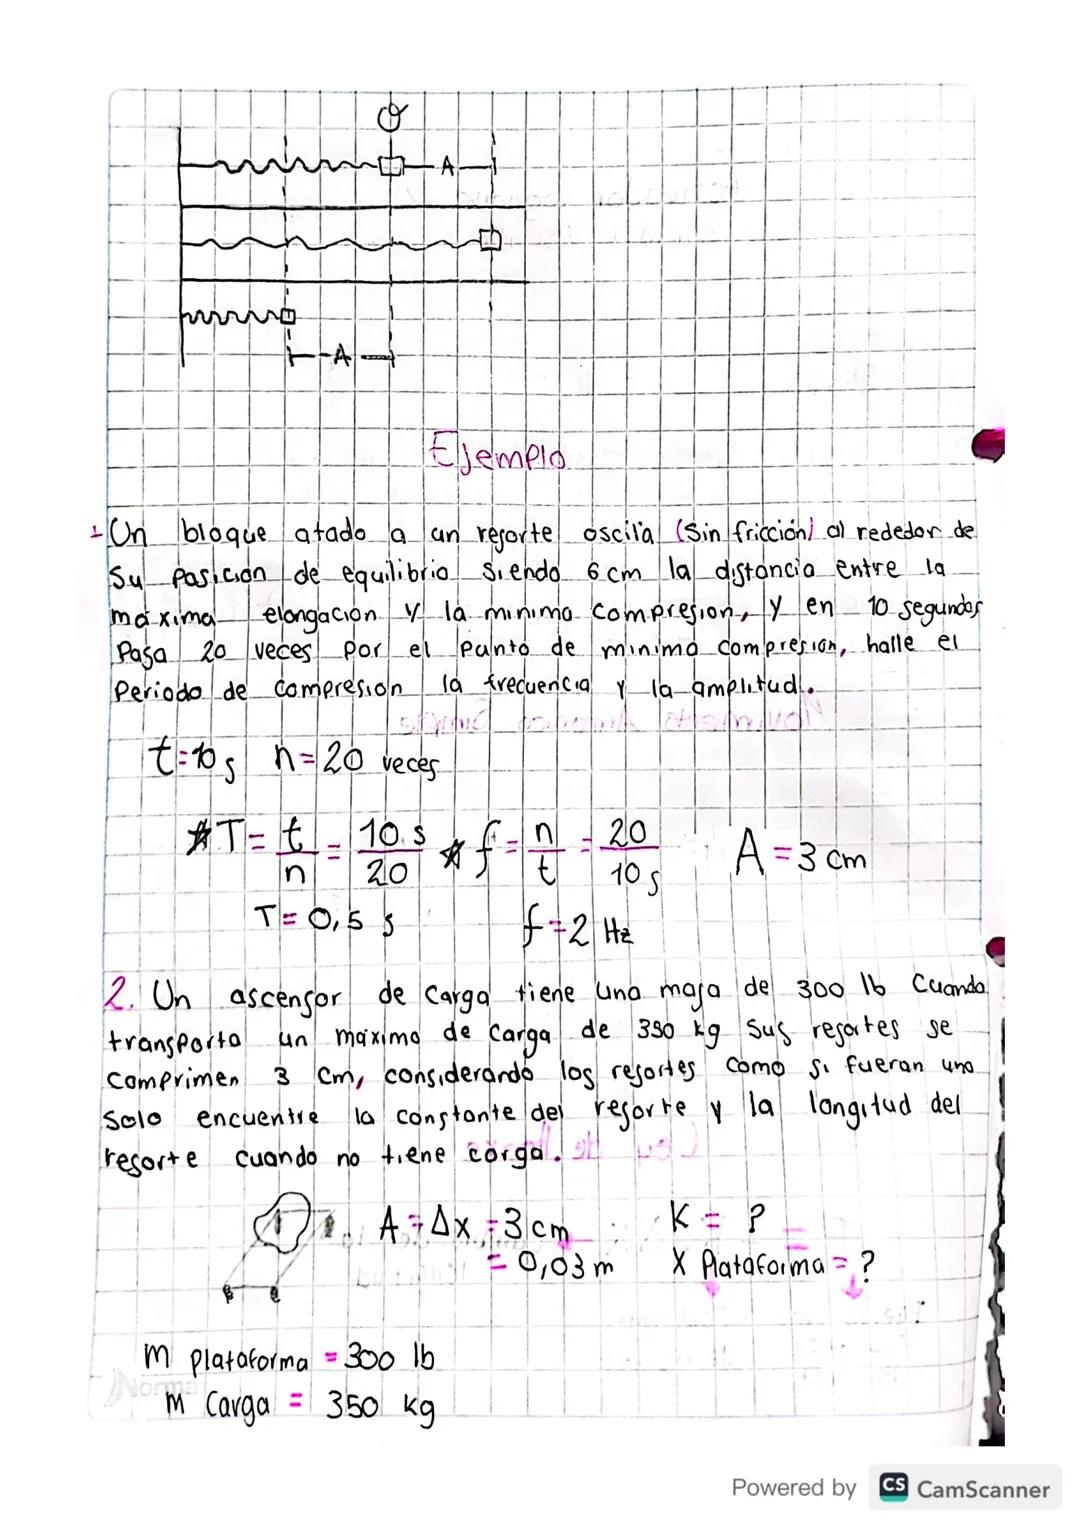 O
A
A
Ejemplo
1 Un bloque atado a un resorte oscila (Sin fricción) al rededor de
Su Posicion de equilibrio Siendo 6 cm la distancia entre la
maxima elongacion y la minima Compresion, y en 10 segundos
Pasa 20 veces por el Punto de minima compresion, halle el
Periodo de Compresion la frecuencia y la amplitud.
Movimiento Armonico Simple
t=10s n=20 veces
*T= t/n = 10 s/20 * f= n/t = 20/10s A=3 cm
T= 0,5 s f=2 Hz
2. Un ascensor de carga tiene una masa de 300 lb Cuando
transporta un maximo de Carga de 350 kg Sus resortes se
Comprimen 3 Cm, considerando los resortes Como si fueran uno
Solo encuentre la constante del resorte y la longitud del
resorte cuando no tiene carga.
A = Δx = 3 cm K = ?
= 0,03 m X Plataforma = ?
m plataforma = 300 lb
Norma
m Carga = 350 kg
Powered by CS CamScanner